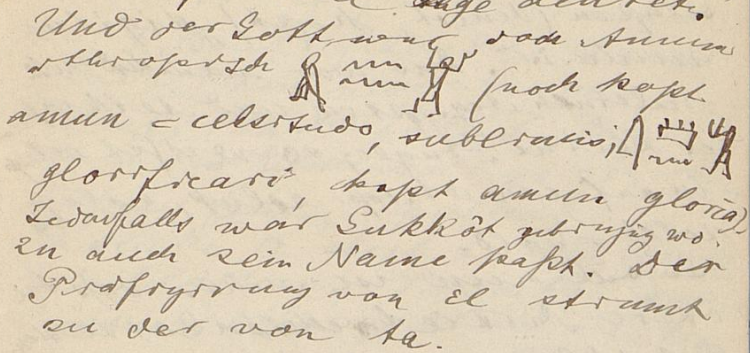 Und der Gott war doch Amun
äthiopisch (noch kopt
amun = celsitudo, sublimis;
glorificari, kopt amun gloria).
Jedenfalls war Sukkôt gebirgig wo-
zu auch sein Name paßt. Der
Präfigirung von El stimmt
zu der von ta.